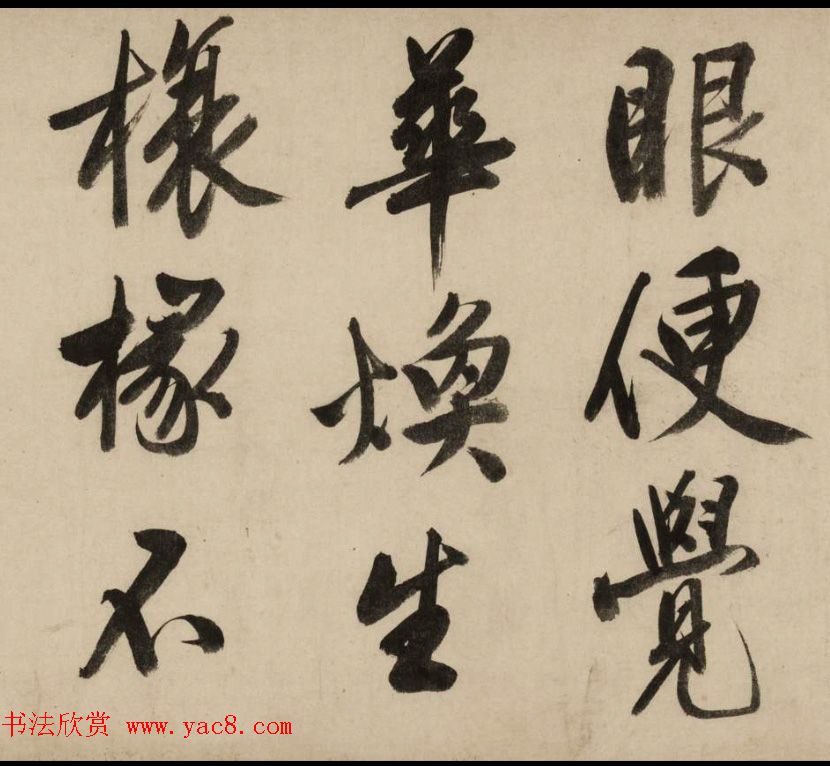 眼便覺
華煥生
榱椽不
书法欣赏 www.yac8.com